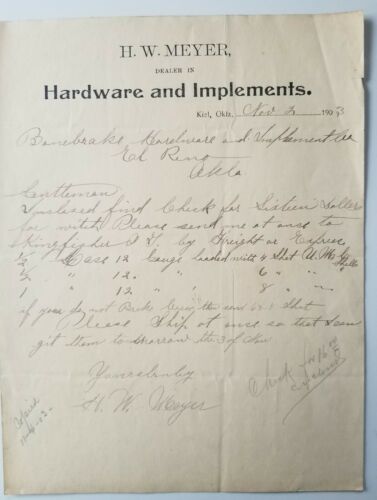 H. W. MEYER,
DEALER IN
Hardware and Implements.
Kiel, Okla, Nov 2 1903
Bonebrake Hardware and Implement Co
El Reno
Okla
Gentleman
Inclosed find Check for Sixteen Dollers
for witch Please send me at once to
Kingfisher O. T. by Freight or Express
1/2 Case 12 Gauge loaded with 4 Shot U. M. C. Shells
1/2 " 12. " " 6 " "
1 " 12. " " 8 " "
if you do not have the send Shot
Please Ship at once so that I can
get them to morrow the 3 of Nov
Yours truly
H. W. Meyer
Check for 16.00